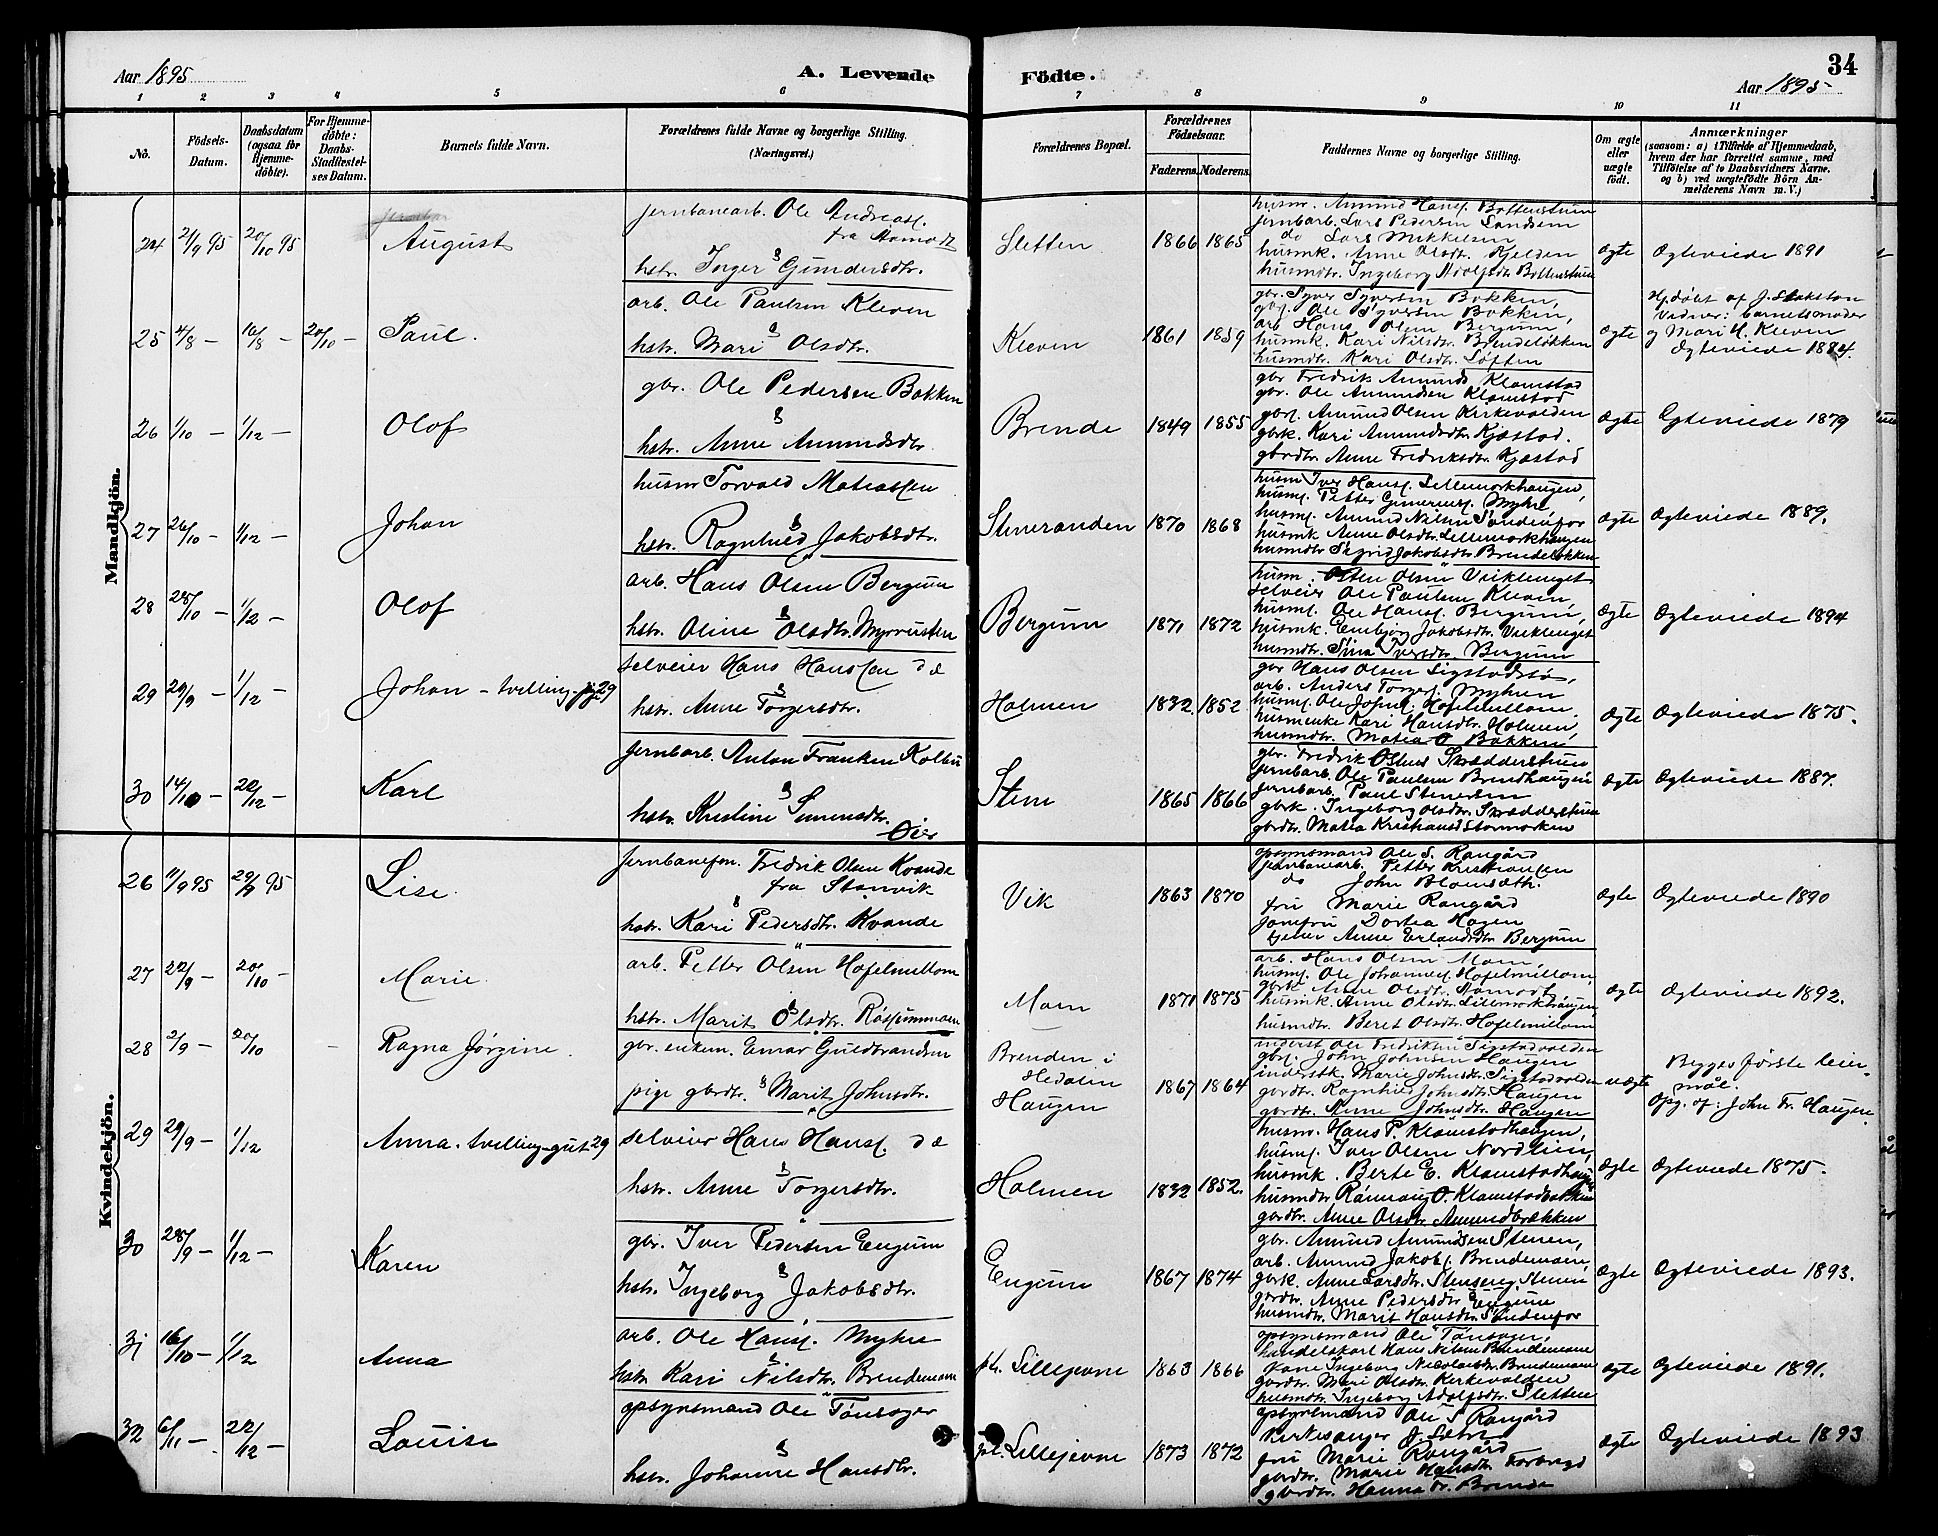 Aar 1895
A. Levende
Födte.
34
Aar 1895
1 2 3 4 5 6 7 8 9 10 11
No.
Födsels-
Datum.
Daabsdatum
(ogsaa for
Hjemme-
döbte).
For Hjemme-
döbte:
Daabs-
Stadfæstel-
ses Datum.
Barnets fulde Navn.
Forældrenes fulde Navne og borgerlige Stilling.
(Næringsvei.)
Forældrenes Bopæl.
Forældrenes
Födselsaar.
Faderens. Moderens.
Faddernes Navne og borgerlige Stilling.
Om ægte
eller
uægte
födt.
Anmærkninger
(saasom: a) i Tilfælde af Hjemmedaab,
hvem der har forrettet samme, med
Tilföielse af to Daabsvidners Navne.
og b) ved uægtefödte Börn An-
melderens Navn m. V.)
Mandkjön.
24 2/9 95 20/10 95
August
jernbanearb. Ole Andreass.
fra Aamodt
&
hstr. Inger Gundersdtr.
Sletten
1866 1865
husm. Amund Hans. Bottenstuen
jernbarb. Lars Pedersen Sandsem
do Lars Mikkelsen
husmk. Anne Olsdtr. Kjelden
husmdtr. Ingeborg Adolfsdtr. Bottenstuen
Ægte
Ægteviede 1891
25 4/8 – 16/8 – 20/10 –
Paul.
arb. Ole Paulsen Kleven
&
hstr. Mari Olsdtr.
Kleven
1861 1859
gbr. Syver Syversen Bakken,
gbs. Ole Syversen Bakken,
arb. Hans Olsen Bergum,
husmk. Kari Nilsdtr. Brendeløkken
husmdtr. Kari Olsdtr. Løften
Ægte
Hj.døbt af J. Stakston
Vidner: barnets moder
og Mari H. Kleven
Ægteviede 1884.
26 1/10 – 1/12 –
Olof
gbr. Ole Pedersen Bakken
&
hstr. Anne Amundsdtr.
Brende
1849 1855
gbr Fredrik Amunds. Klomstad
gbr. Ole Amundsen Klomstad
gbs. Amund Olsen Kirkevolden
gbrk. Kari Amundsdtr. Kjæstad.
gbrdtr. Anne Fredriksdtr. Kjæstad
Ægte
Ægteviede 1879
27 26/10 – 1/12 –
Johan
husm Torvald Matiassen
&
hstr. Ragnhild Jakobsdtr.
Steneranden
1870 1868
husm Iver Hans. Lillemorkhaugen,
husms. Petter Gunerius. Myhre
husms. Amund Nilsen Søndenfor
husmk Anne Olsdtr. Lillemorkhaugen
husmdtr. Sigrid Jakobsdtr. Brendeløkken
Ægte
Ægteviede 1889.
28 28/10 – 1/12 –
Olof
arb. Hans Olsen Bergum
&
hstr. Oline Olsdtr. Myrvusten
Bergum
1871 1872
husm. Osten Olsen Viklenget
selveier Ole Paulsen Kleven
husms. Ole Hans. Bergum,
husmk. Embjør Jakobsdtr. Viklenget
husmdtr. Sina Iversdtr. Bergum
Ægte
Ægteviede 1894
29 29/9 – 1/12 –
Johan – tvilling – pige 29
selveier Hans Hanssen d æ
&
hstr. Anne Torgersdtr.
Holmen
1832 1852
gbr Hans Olsen Sigstadstø,
arb. Anders Torgers. Myhren
husms. Ole Johns. Hofelmellom,
husmenke Kari Hansdtr. Holmen,
husmdtr. Matea O Bakken
Ægte
Ægteviede 1875.
30 14/10 – 22/12 –
Karl
jernbarb. Anton Franken Kolbu
&
hstr. Kristine Simensdtr.
Øier
Stene
1865 1866
gbr. Fredrik Olsens Skrædderstuen
jernbarb. Ole Paulsen Brendhaugen
jernbarb. Paul Stenersen
gbrk. Ingeborg Olsdtr. Skrædderstuen
gbrdtr. Matea Kristiansd Stormorken
Ægte
Ægteviede 1887.
Kvindekjön.
26 11/9 95 29/9 95
Lise.
jernbanefm. Fredrik Olsen Kvande
fra Stenvik
&
hstr. Kari Pedersdtr. Kvande
Vik
1863 1870
opsynsmand Ole S. Rangård
jernbanearb. Petter Kristiansen
do John Blomsæth.
fru Marie Rangård
jomfru Dortea Hagen
tjener Anne Erlandsdtr Bergum
Ægte
Ægteviede 1890
27 22/9 – 20/10 –
Marie.
arb. Petter Olsen Hofelmellom
&
hstr. Marit Olsdtr. Røssummoen
Moen
1871 1875
arb. Hans Olsen Moen,
husms. Ole Johannes. Hofelmellom
gbrk Anne Olsdtr. Aamodt
husmk. Anne Olsdtr. Lillemorkhaugen
husmdtr. Beret Olsdtr. Hofelmellom
Ægte
Ægteviede 1892.
28 2/9 – 20/10 –
Ragna Jørgine.
gbr. enkem. Einar Guldbrandsen
&
pige gbrdtr. Marit Johnsdtr.
Brenden i
Hedalen
Haugen
1867 1864
inderst Ole Fredriksen Sigstadvolden
gbs. John Johnsen Haugen
inderstk. Marie Johnsdtr. Sigstadvolden
gbrdtr. Ragnhild Johnsdtr. Haugen
gbrdtr. Stine Johnsdtr. Haugen
uægte
Begges første leier-
mål.
Opg. af: John Fr. Haugen.
29 29/9 – 1/12
Anna – tvilling – gut 29
selveier Hans Hans. d æ
&
hstr. Anne Torgersdtr.
Holmen
1832 1852.
husm. Hans P. Klomstadhaugen,
husms. Iver Olsen Nordlien,
husmk. Berte E. Klomstadhaugen
husmdtr Rønnaug O. Klomstadbakken
gbrdtr. Anne Olsdtr. Amundbrækken
Ægte
Ægteviede 1875.
30 28/9 – 1/12 –
Karen
gbr. Iver Pedersen Engum
&
hstr. Ingeborg Jakobsdtr.
Engum
1867 1874
gbr. Amund Amundsen Stenen,
arb. Amund Jakobs. Brendemoen,
gbrk. Anne Larsdtr. Stenseng Stenen
gbrdtr. Anne Pedersdtr Engum
husmdtr. Marit Hansdtr. Søndenfor
Ægte
Ægteviede 1893.
31 16/10 – 1/12
Anna
arb. Ole Hans. Myhre
&
hstr. Kari Nilsdtr. Brendemoen
pt. Lillejevne
1863 1866
opsynsmand Ole Tønsager,
handelskarl Hans Nilsen Brendemoen
kone Ingeborg Nicolaisdtr. Brendemoen
gbrdtr. Mari Olsdtr. Kirkevolden
husmdtr. Ingeborg Adolfsdtr. Sletten
Ægte
Ægteviede 1891.
32 6/11 – 22/12 –
Louise
opsynsmand Ole Tønsager
&
hstr. Johanne Hansdtr.
pt. Lillejevne
1873 1872
opsynsmand Ole S Rangård
kirkesanger J.
fru Marie Rangård
gbrdtr. Marie Hansdtr. Forbrigd
gbrdtr. Hanna Fr. Brende
Ægte
Ægteviede 1893